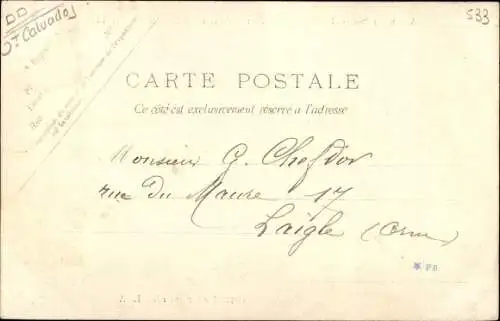 DD
Ct Calvados
533
CARTE POSTALE
Ce côté est exclusivement réservé à l'adresse
Monsieur G. Chefdor
rue Du Maure 17
Laigle (Orne)